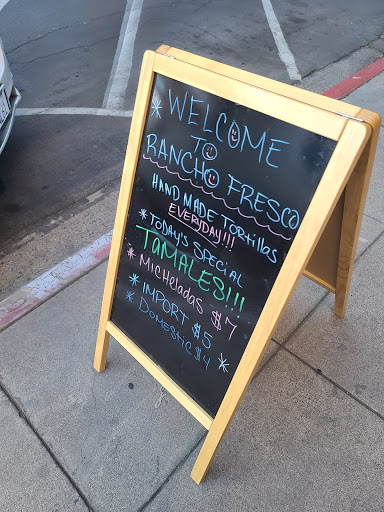 * WELCOME
TO
RANCHO FRESCO
HAND MADE TORTillas
EVERYDAY!!!
* TODAY'S SPECIAL
TAMALES!!!
* MicHeladas $7
* IMPORT $5
* DOMESTIC $4 *